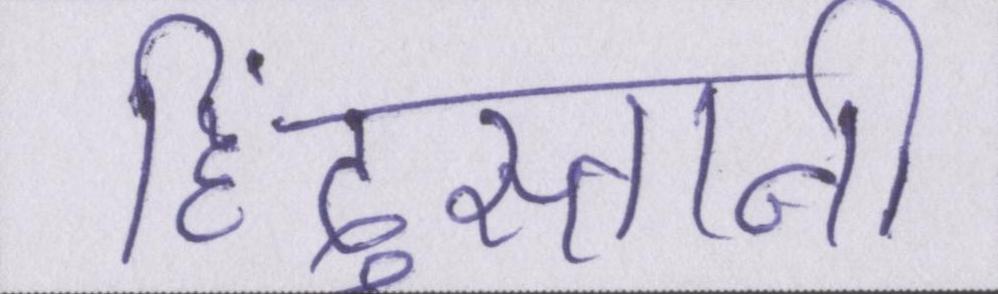 हिंदुस्तानी